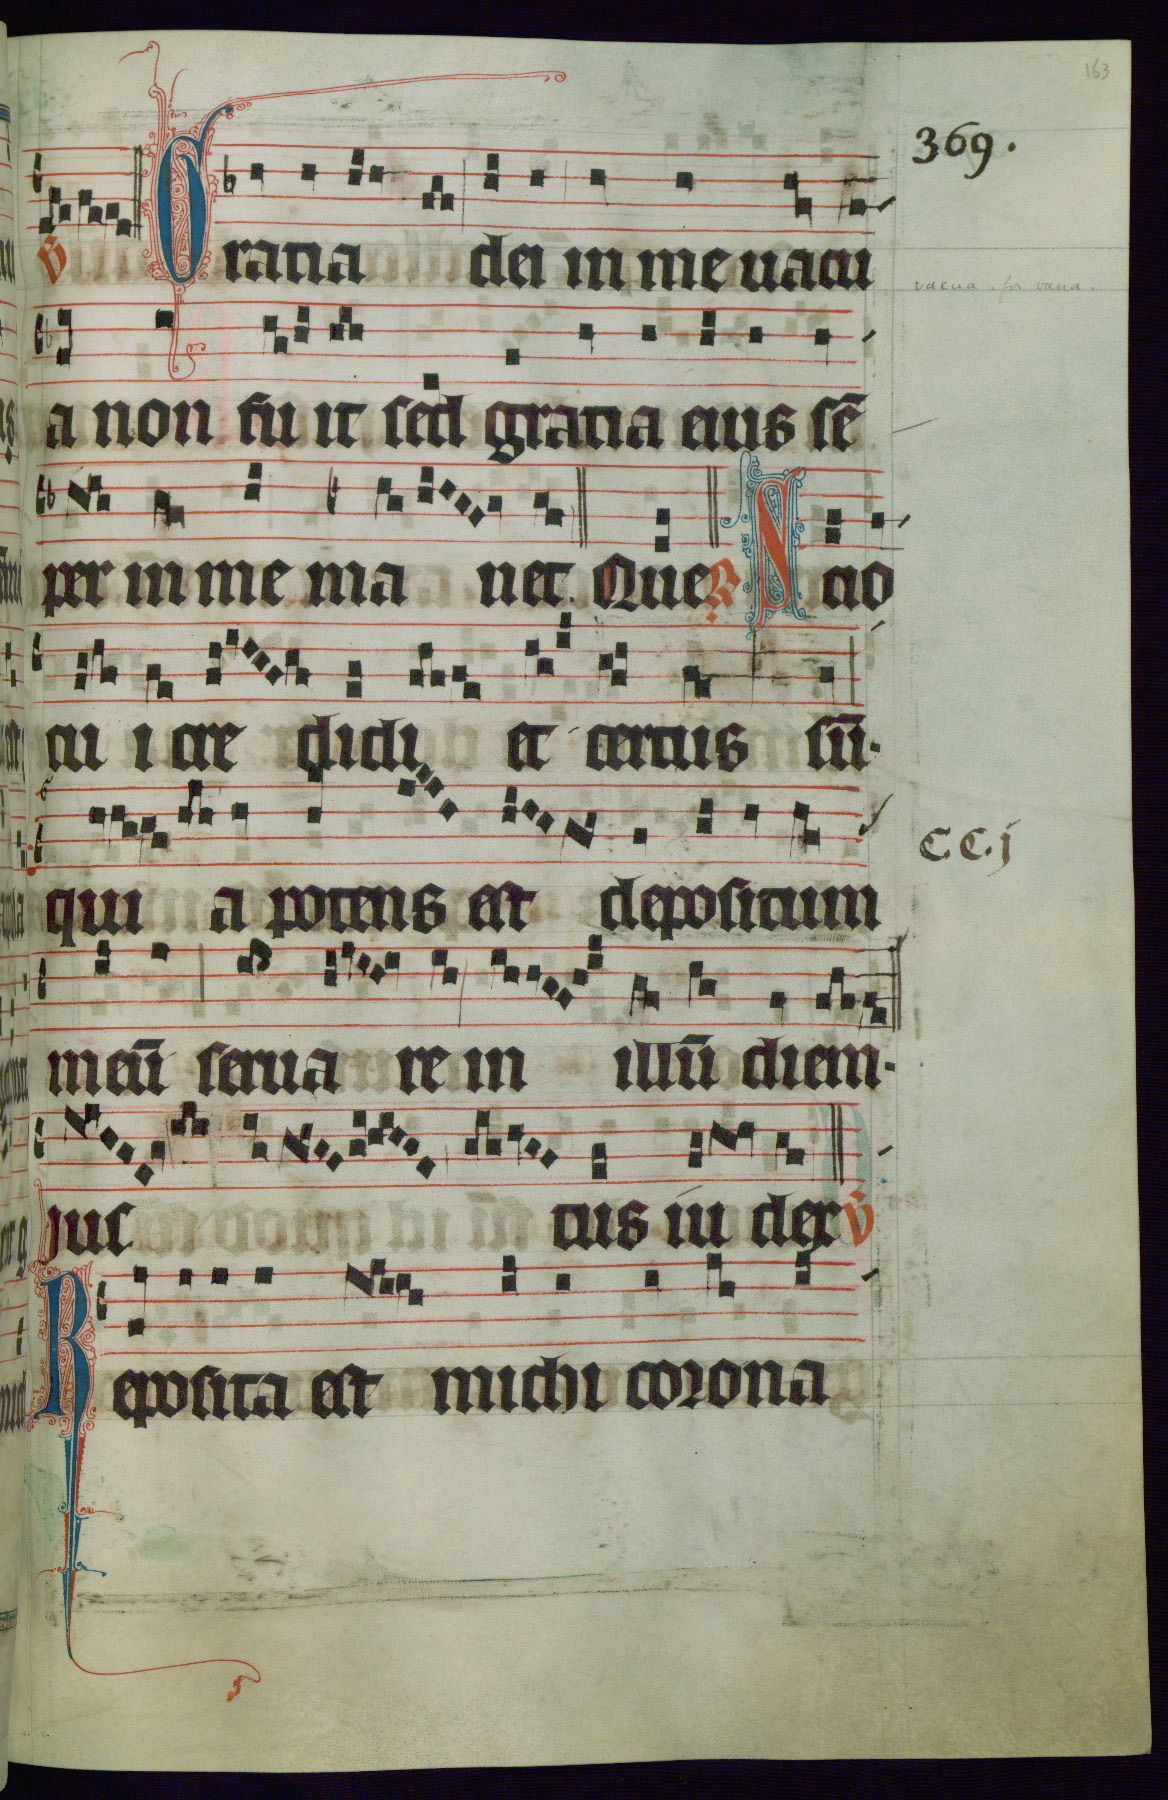 163
369.
V Gratia dei in me uacu
vacua . for vana .
a non fu it sed gratia eius sē
per in me ma net. Que R Scio
cui i cre didi et certus sū.
C.C.j
qui a potens est depositum
meū serua re in illū diem.
jus tus iu dex V
Reposita est michi corona